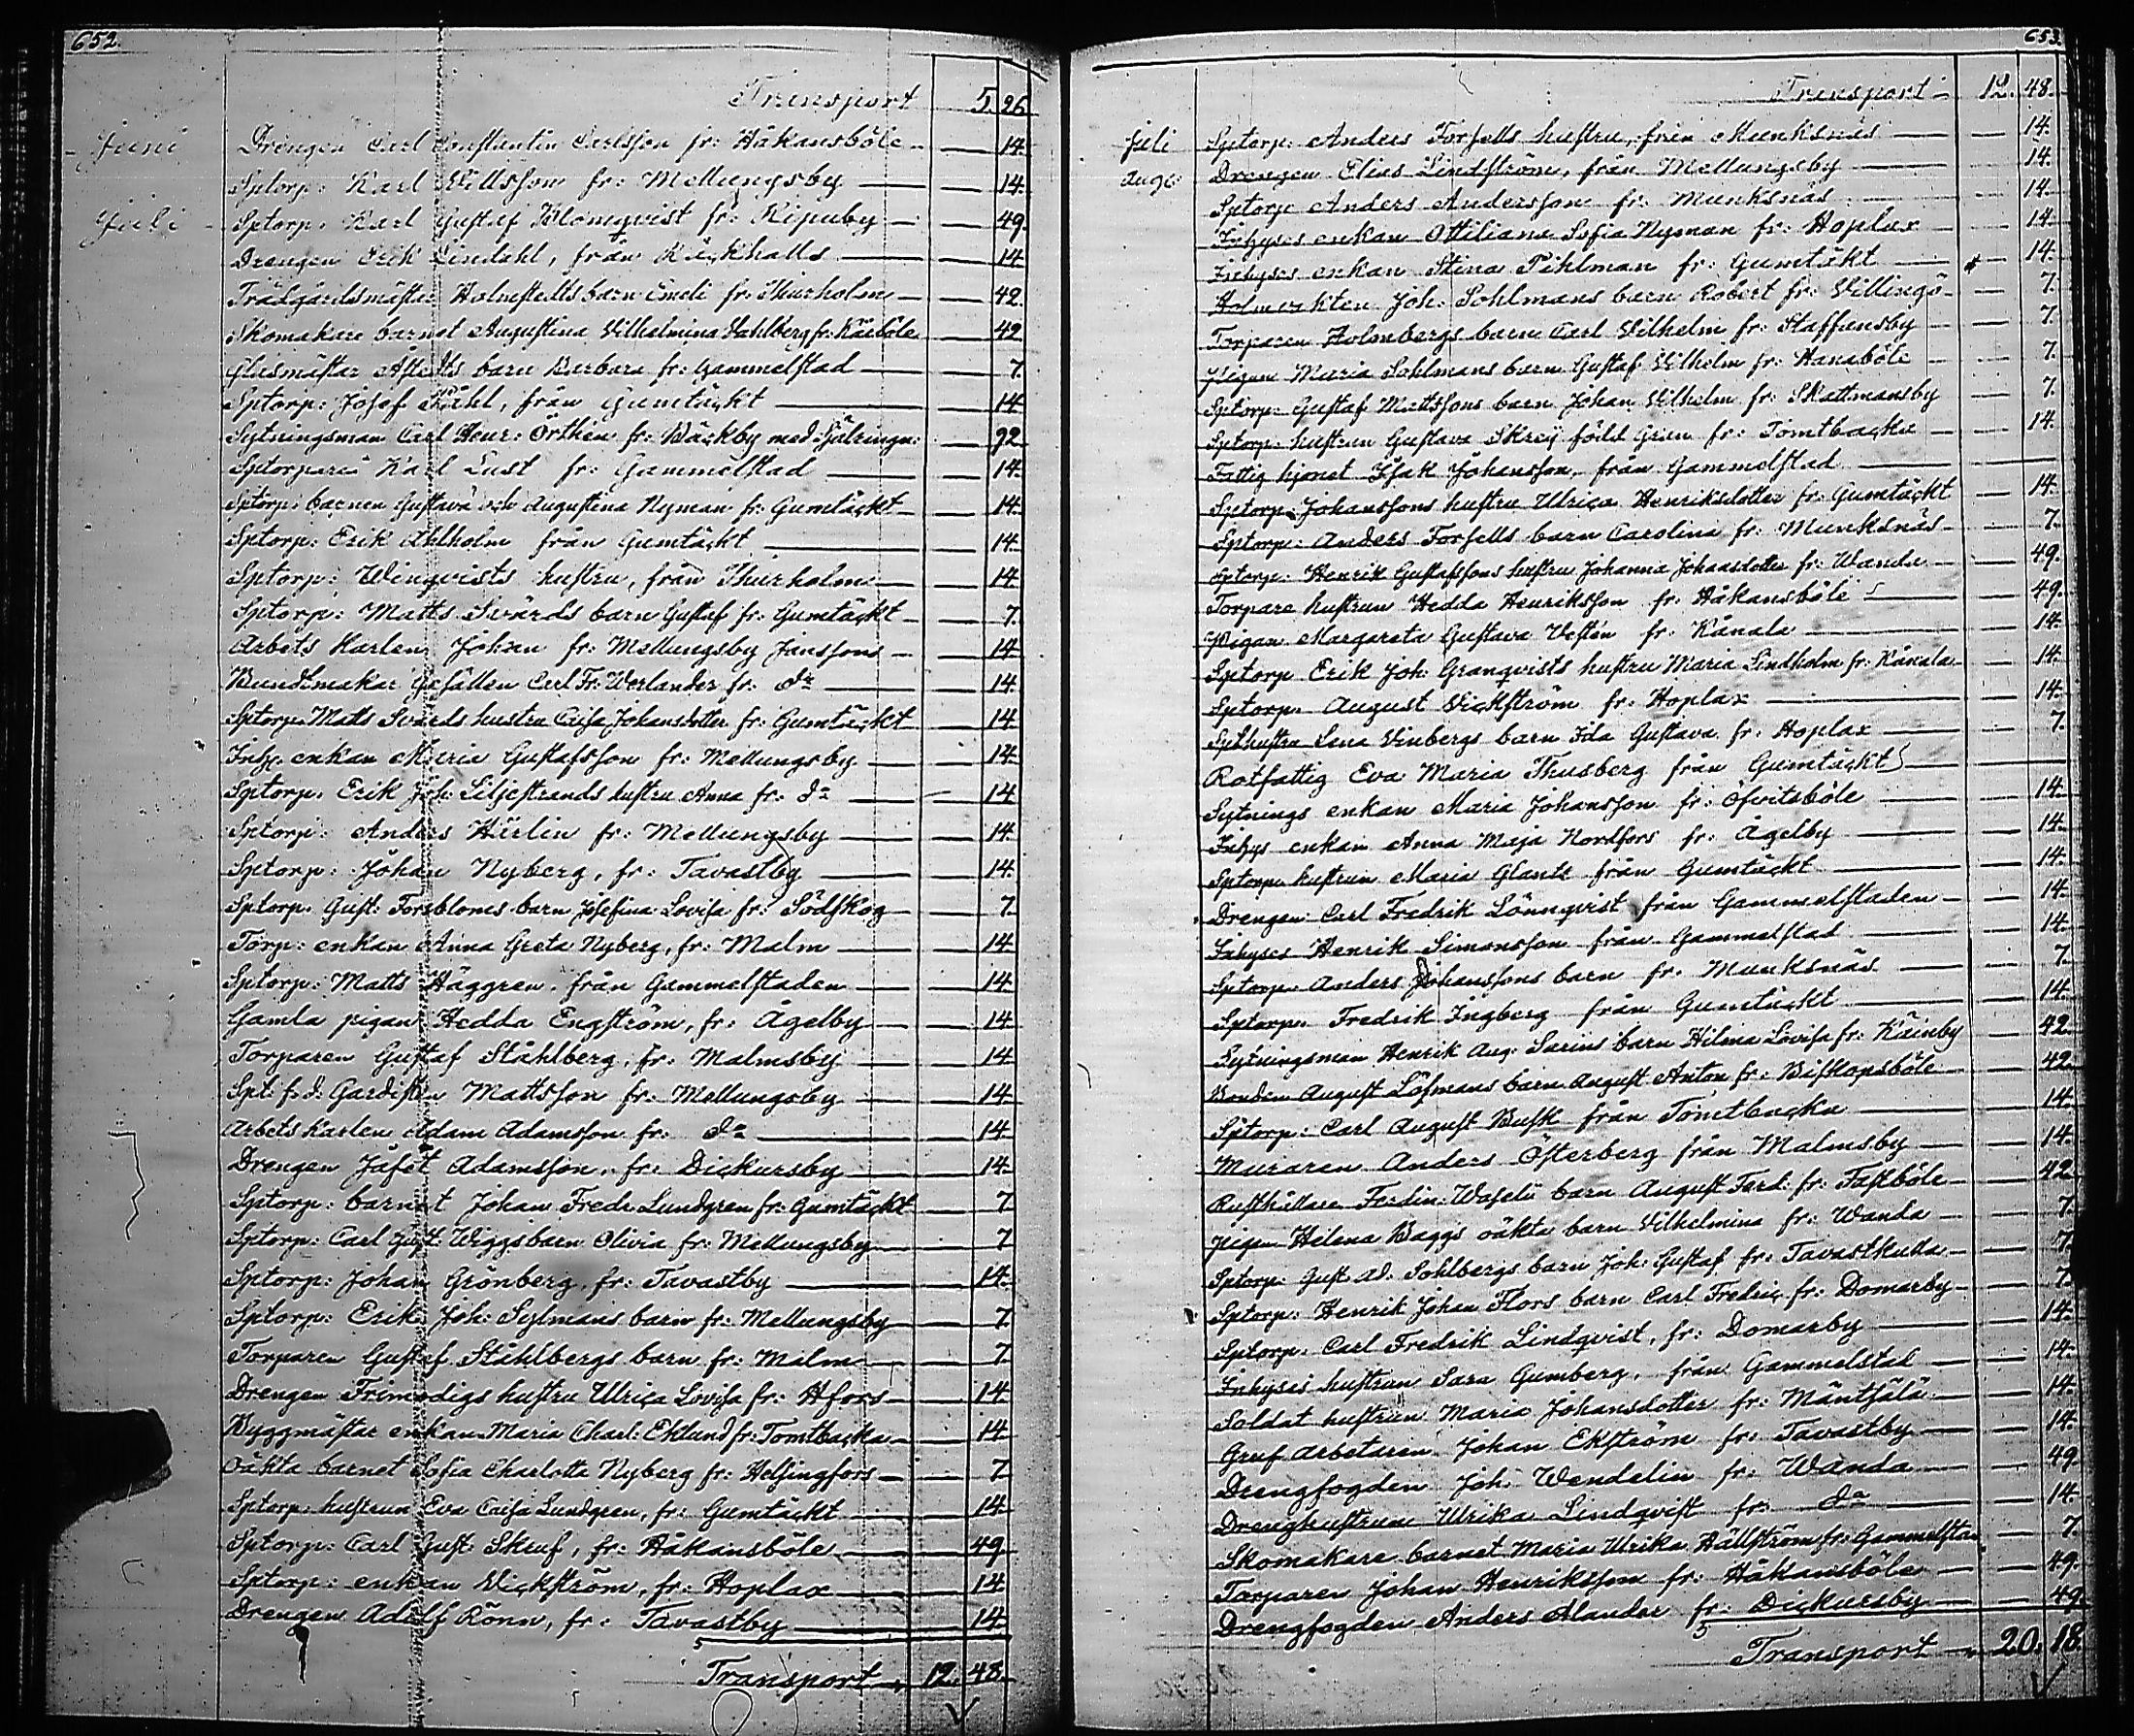 652.
Transport 5. 26
Juni Drengen Carl Constantin Carlsson fr: Håkansböle — 14
Sptorp: Karl Villsson fr: Mellungsby — 14
Juli Sptorp. Karl Gustaf Blomqvist fr: Ripuby — 49
Drengen Erik Lindahl, från Räckhalls — 14
Trädgårdsmäster Holmstedts barn Emeli fr: Thurholm — 42
Skomakare barnet Augustina Vilhelmina Vahlberg fr: Kårböle 42
Glasmästar barn Barbara fr: Gammelstad — 7
Sptorp: Josef Ståhl, från Gumtäckt — 14
Sytningsman Carl Henr: Örthén fr: Bäckby med Själringn: 92
Sptorparen Karl Lust fr: Gammelstad — 14
Sptorp: barnen Gustava och Augustina Nyman fr: Gumtäckt — 14
Sptorp: Erik Ahlholm från Gumtäckt — 14
Sptorp: Winqvists hustru, från Thurholm — 14
Sptorp: Matts Svärds barn Gustaf fr: Gumtäckt — 7
Arbets Karlen Johan fr: Mellungsby Jansson — 14
Bundtmakar Gesällen Carl Fr: Werlander fr: do — 14
Sptorp. Matts Svärds hustru Caisa Johansdotter fr: Gumtäckt — 14
Inhy. enkan Maria Gustafsson fr: Mellungsby — 14
Sptorp. Erik Joh: Liljestrands hustru Anna fr: do — 14
Sptorp: Anders Härlin fr: Mellungsby — 14
Sptorp: Johan Nyberg, fr: Tavastby — 14
Sptorp. Gust: Forsbloms barn Josefina Lovisa fr: Södskog — 7
Torp: enkan Anna Greta Nyberg, fr: Malm — 14
Sptorp: Matts Häggren. från Gammelstaden — 14
Gamla pigan Hedda Engström, fr: Ågelby — 14
Torparen Gustaf Ståhlberg, fr: Malmsby — 14
Spt: f.d. Gardisten Mattsson fr: Mellungsby — 14
Arbets Karlen Adam Adamsson fr: do — 14
Drengen Jafet Adamsson, fr: Dickursby — 14
Sptorp: barnet Johan Fredr. Lundgren fr: Gumtäckt 7
Sptorp: Carl Gust: Wiggs barn Olivia fr: Mellungsby — 7
Sptorp: Johan Grönberg, fr: Tavastby — 14
Sptorp: Erik Joh: Sylmans barn fr: Mellungsby — 7
Torparen Gustaf Ståhlbergs barn fr: Malm — 7
Drengen Frimodigs hustru Ulrica Lovisa fr: Hfors — 14
Byggmästar enkan Maria Charl: Eklund fr: Tomtbacka — 14
Oäkta barnet Sofia Charlotta Nyberg fr: Helsingfors — 7
Sptorp: hustrun Eva Caisa Lundgren, fr: Gumtäckt — 14
Sptorp: Carl Gust: Skruf, fr: Håkansböle — 49
Sptorp: enkan Vickström, fr: Hoplax — 14
Drengen Adolf Rönn, fr: Tavastby — 14
Transport 12. 48
653.
Transport 12. 48.
Juli Sptorp: Anders Forsells hustru, från Munksnäs — 14.
Aug: Drengen Elias Lindström, från Mellungsby — 14.
Sptorp Anders Andersson fr: Munksnäs — 14.
Inhyses enkan Ottiliana Sofia Nyman fr: Hoplax — 14.
Inhyses enkan Stina Pihlman fr: Gumtäckt — 14.
Joh: Sohlmans barn Robert fr: Villingö — 7.
Torparen Holmbergs barn Carl Vilhelm fr: Staffansby — 7.
Pigan Maria Sahlmans barn Gustaf Vilhelm fr: Hanaböle — 7.
Sptorp. Gustaf Mattssons barn Johan Vilhelm fr: Skattmansby — 7.
Sptorp. hustrun Gustava Skrey född Grän fr: Tomtbacka — 14.
Fattig hjonet Isak Johansson, från Gammelstad —
Sptorp: Johanssons hustru Ulrica Henriksdotter fr: Gumtäckt — 14.
Sptorp: Anders Forsells barn Carolina fr: Munksnäs — 7.
Sptorp: Henrik Gustafssons hustru Johanna Johansdotter fr: Wanda — 49.
Torpare hustrun Hedda Henriksson fr: Håkansböle — 49.
Pigan Margareta Gustava Vestén fr: Kånala — 14.
Sptorp Erik Joh: Granqvists hustru Maria Lindholm fr: Kånala — 14.
Sptorp. August Vickström fr: Hoplax — 14.
Spt hustru Lena Vinbergs barn Ida Gustava fr: Hoplax — 7.
Rotfattig Eva Maria Thusberg från Gumtäckt —
Sytnings enkan Maria Johansson fr: Öfvitsböle — 14.
Inhys enkan Anna Maja Nordfors fr: Ågelby — 14.
Sptorp hustrun Maria Glants från Gumtäckt — 14.
Drengen Carl Fredrik Lönnqvist från Gammelstaden — 14.
Inhyses Henrik Simonsson från Gammelstad — 14.
Sptorp. Anders Johanssons barn fr: Munksnäs — 7.
Sptorp. Fredrik Ingberg från Gumtäckt — 14.
Sytningsman Henrik Aug: Sarins barn Hilma Lovisa fr: Käinby 42
Bonden August Löfmans barn August Anton fr: Biskopsböle — 42.
Sptorp: Carl August Busk från Tomtbacka — 14.
Muraren Anders Österberg från Malmsby — 14.
Rusthållare Ferdin: Wasell barn August Ferd: fr: Fastböle — 42
pigan Helena Baggs oäkta barn Vilhelmina fr: Wanda — 7.
Sptorp: Gust Ad: Sohlbergs barn Joh: Gustaf fr: Tavastkulla — 7.
Sptorp: Henrik Johan Flors barn Carl Fredric fr: Domarby — 7.
Sptorp. Carl Fredrik Lindqvist, fr: Domarby — 14.
Inhyses hustrun Sara Gumberg, från Gammelstad — 14.
Soldat hustrun Maria Johansdotter fr: Mäntsälä — 14.
Gruf Arbetaren Johan Ekström fr: Tavastby — 14.
Drengfogden Joh: Wendelin fr: Wanda — 49
Drenghustrun Ulrika Lindqvist fr: do — 14.
Skomakare barnet Maria Ulrika Hällström fr: Gammelstad 7.
Torparen Johan Henriksson fr: Håkansböle — 49.
Drengfogden Anders Alander fr: Dickursby — 49.
Transport 20. 18.